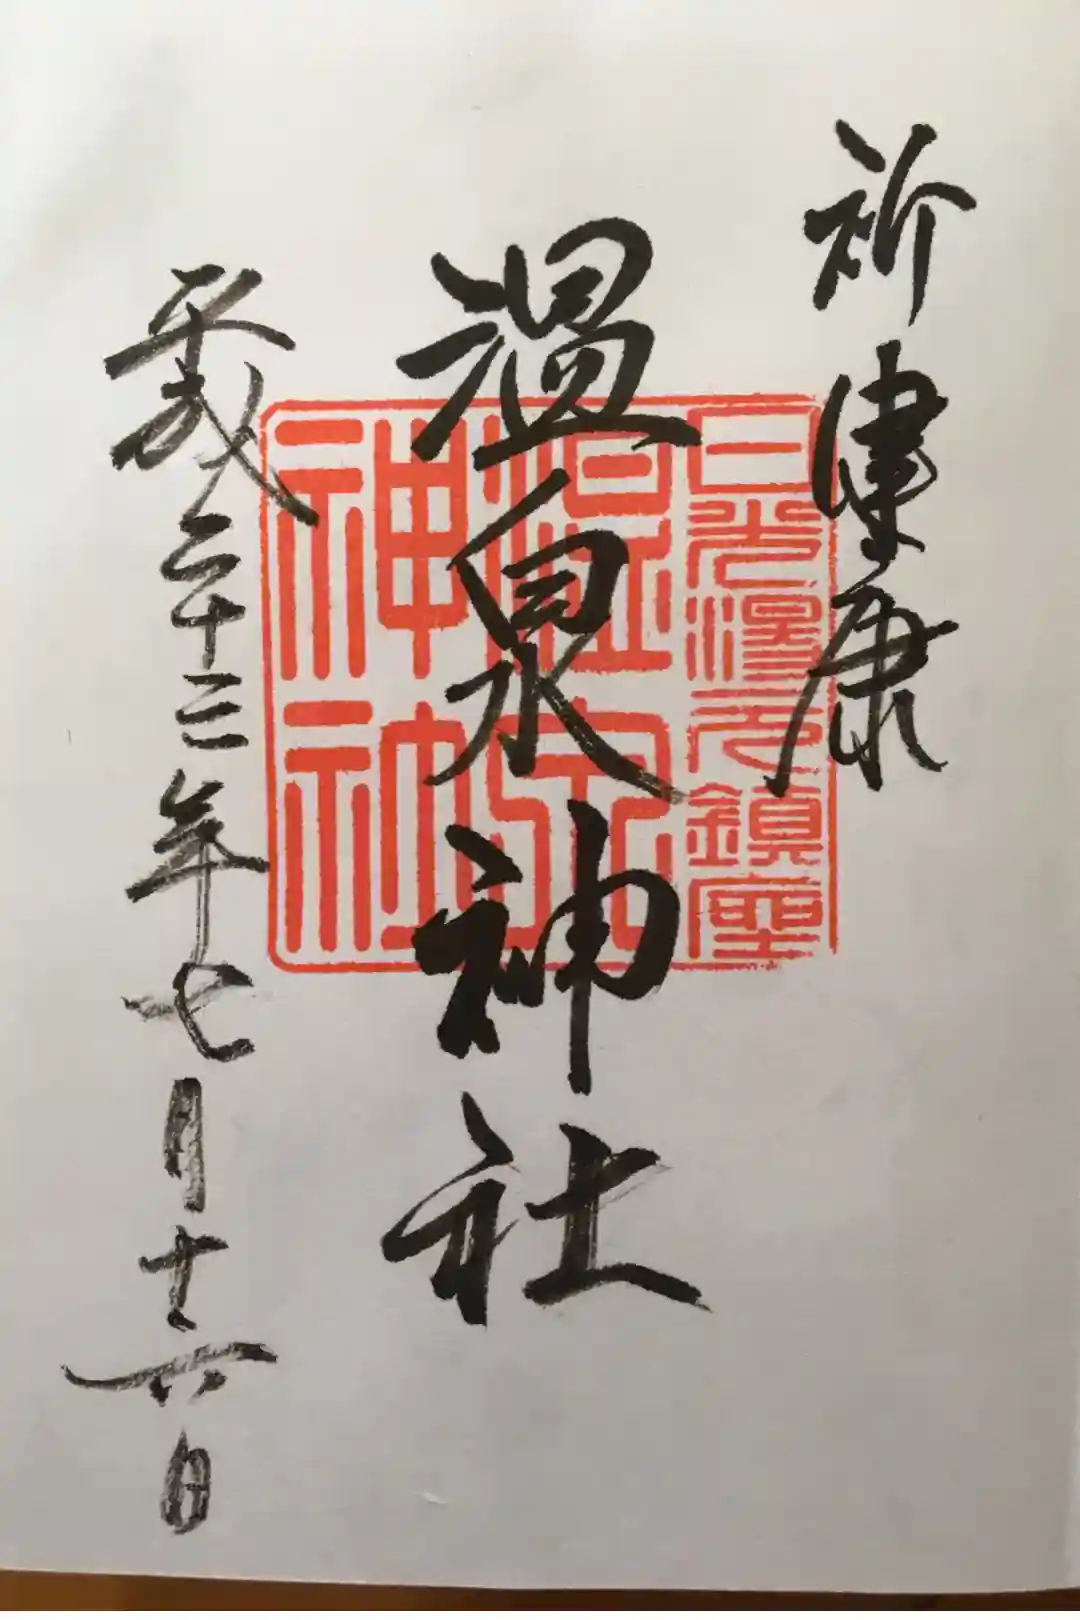 祈健康
温泉神社
平成二十三年七月十六日
日光湯元鎮座
温泉
神社